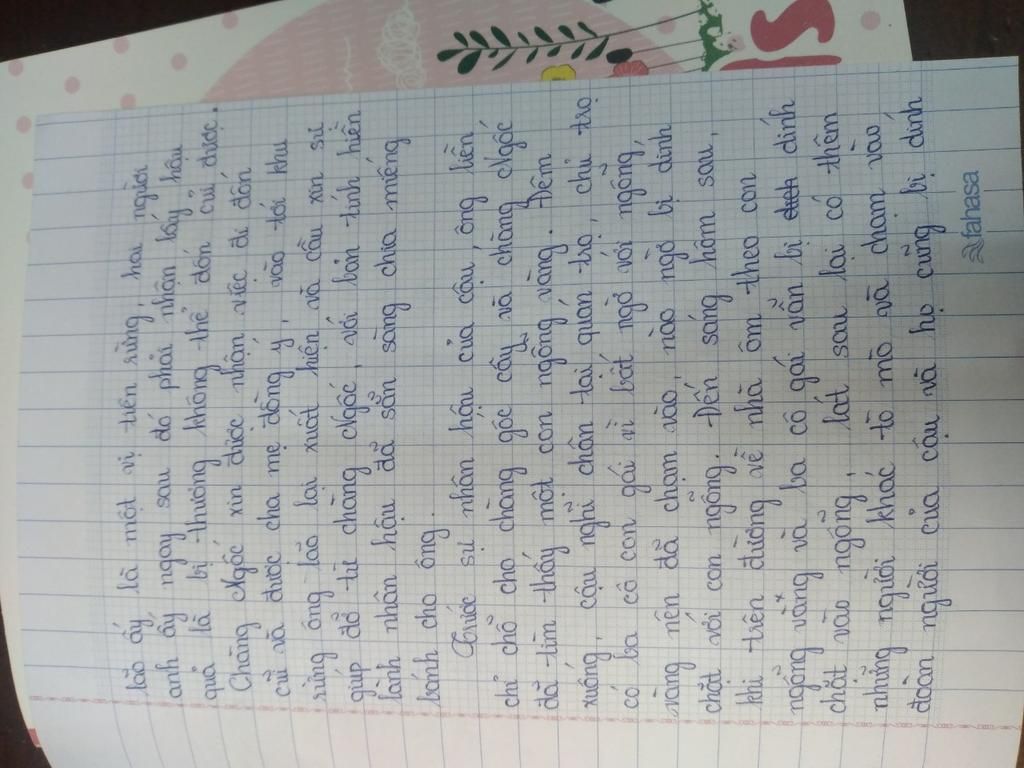 lão ấy là một vị tiên rừng, hai người
anh ấy ngay sau đó phải nhận lấy hậu
quả là bị thương không thể đốn củi được.
Chàng Ngốc xin được nhận việc đi đốn
củi và được cha mẹ đồng ý, vào tới khu
rừng ông lão lại xuất hiện và cầu xin sự
giúp đỡ từ chàng Ngốc, với bản tính hiền
lành nhân hậu đã sẵn sàng chia miếng
bánh cho ông.
Trước sự nhân hậu của cậu, ông liền
chỉ chỗ cho chàng gốc cây và chàng Ngốc
đã tìm thấy một con ngỗng vàng. Đêm
xuống, cậu nghỉ chân tại quán trọ, chủ trọ
có ba cô con gái vì bất ngờ với ngỗng,
vàng nên đã chạm vào, nào ngờ bị dính
chặt với con ngỗng. Đến sáng hôm sau,
khi trên đường về nhà ôm theo con
ngỗng vàng và ba cô gái vẫn bị dính
chặt vào ngỗng, lát sau lại có thêm
những người khác tò mò và chạm vào
đoàn người của cậu và họ cũng bị dính
fahasa